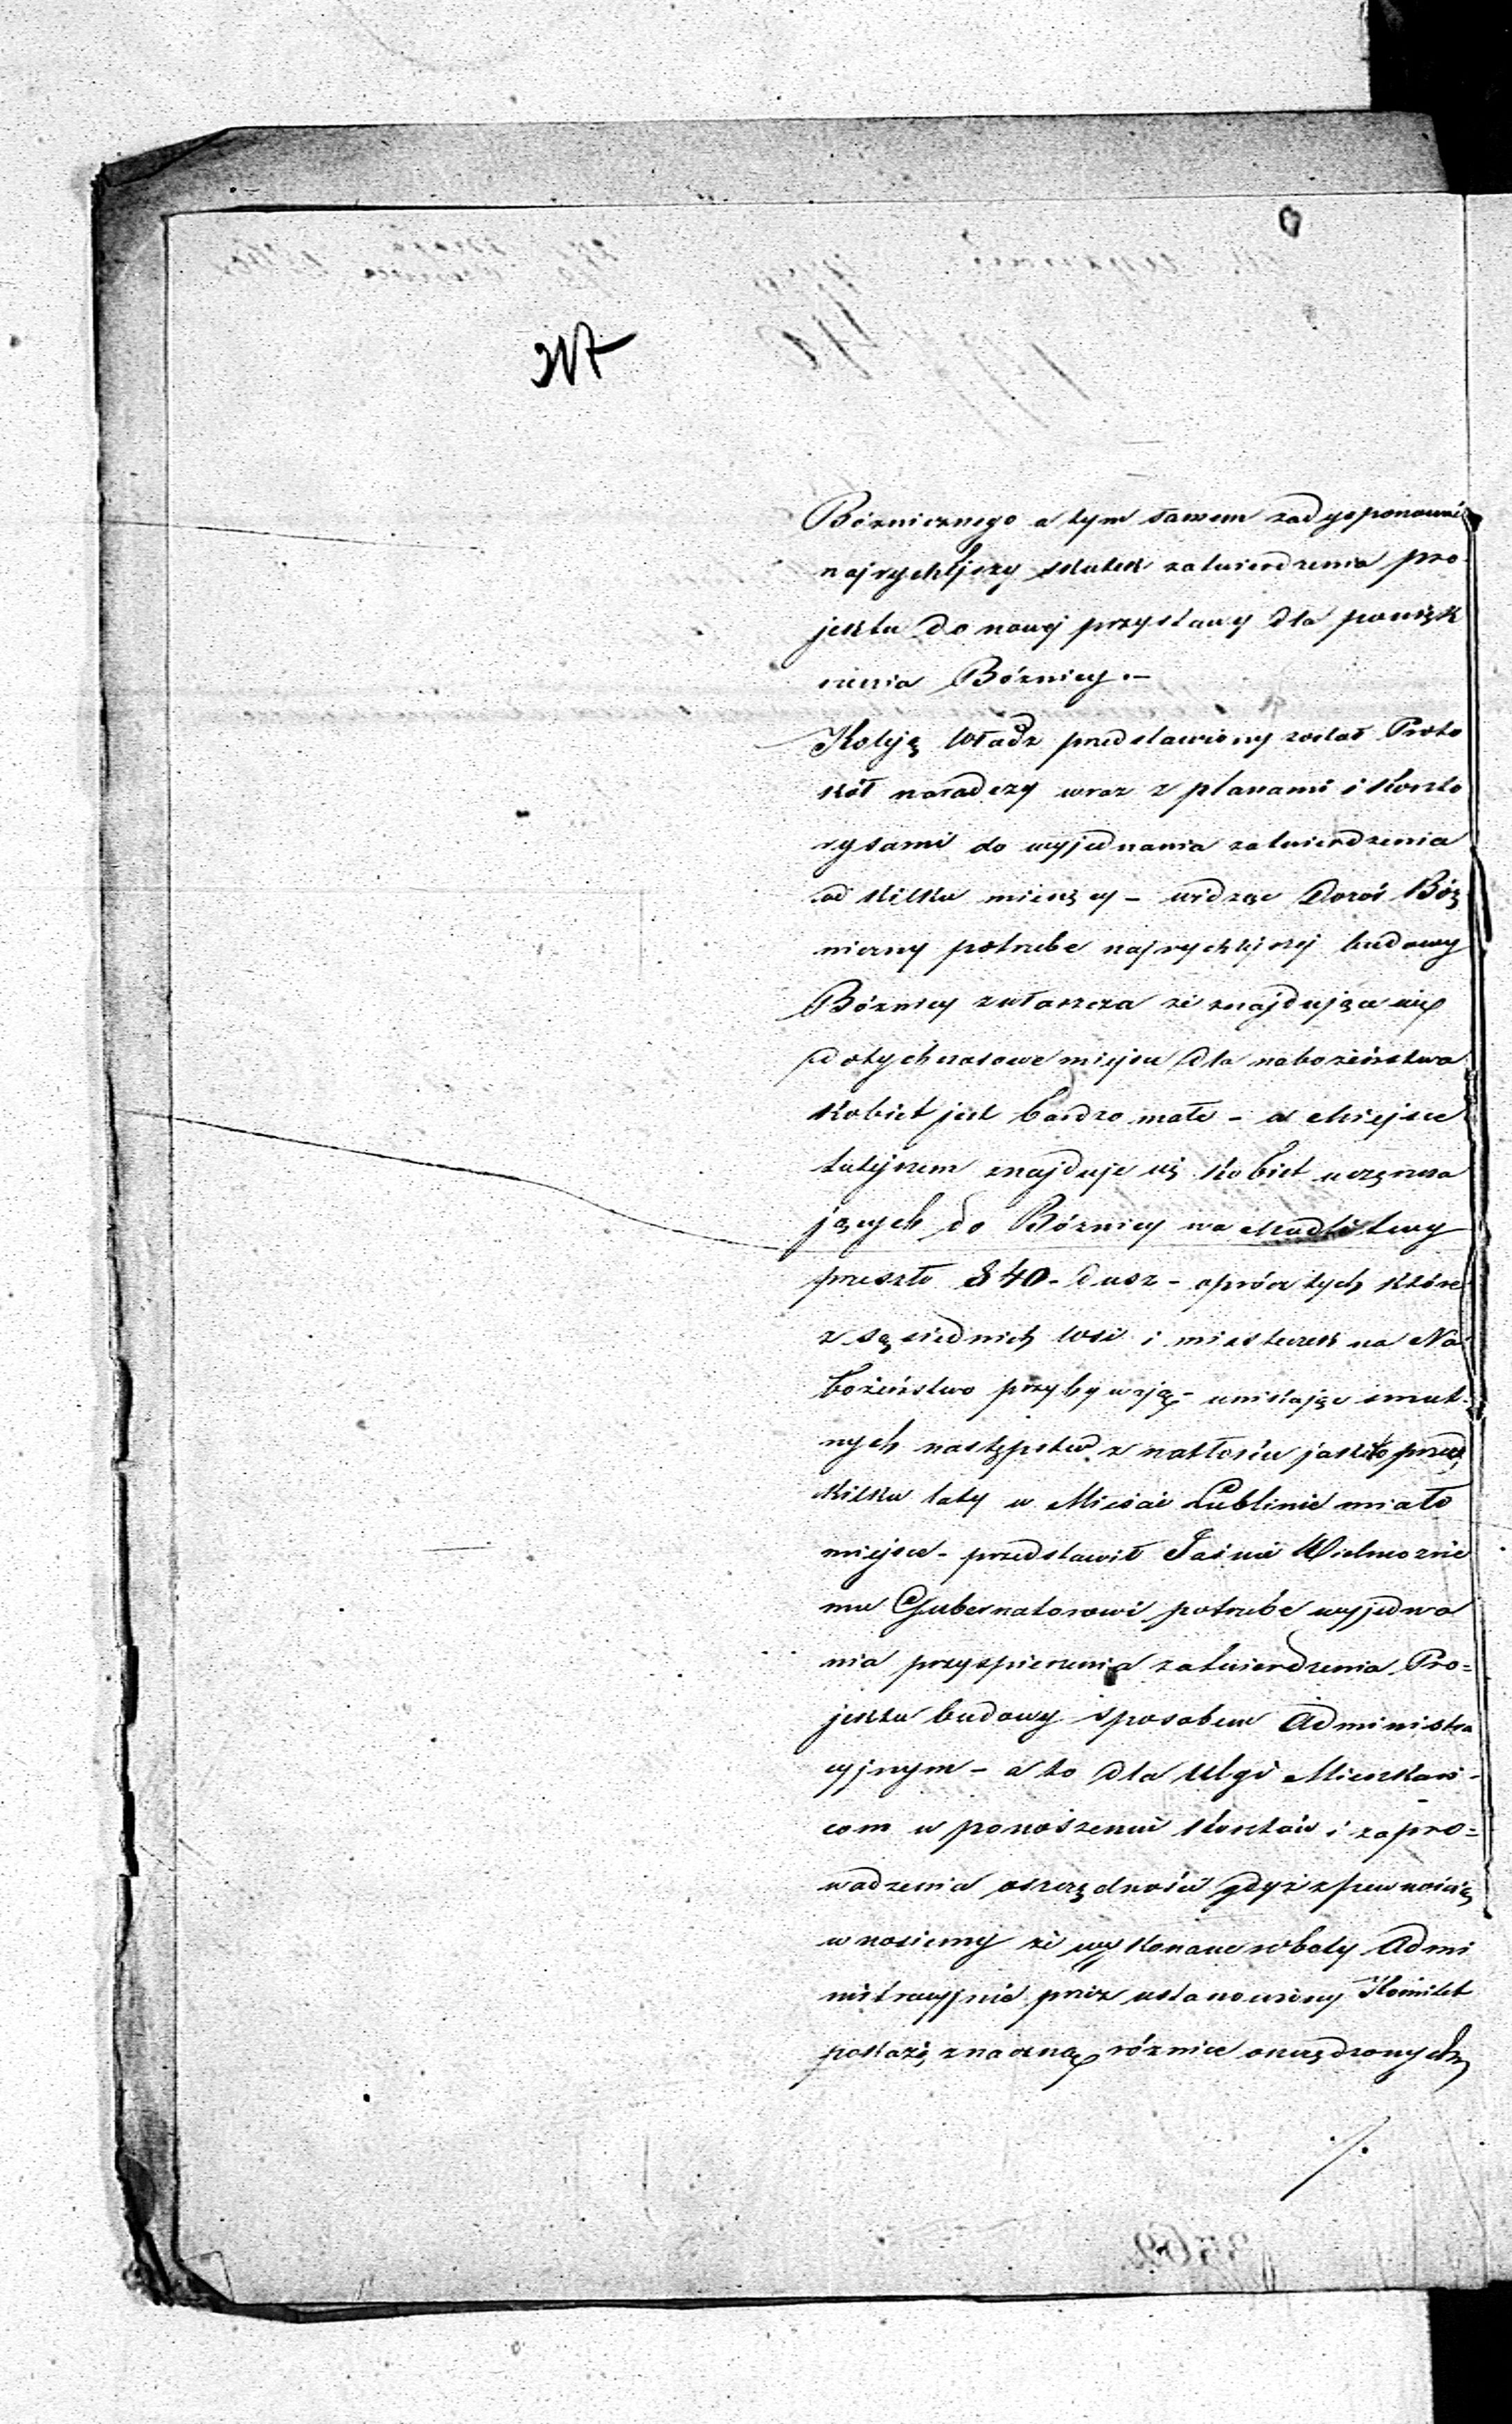 Bóżnicznego a tym samem zadysponować
najrychlejszy skutek zatwierdzenia pro
jektu do nowej przystawy dla powięk
szenia Bóżnicy. –
Koleją Władz przedstawiony został Proto
kół naradczy wraz z planami i koszto
rysami do wyjednania zatwierdzenia
od kilku miesięcy – widząc Dozór Bóż
niczny potrzebe najrychlejszej budowy
Bóżnicy zwłaszcza że znajdujące się
dotychczasowe miejsce dla nabożeństwa
kobiet jest bardzo małe – a Miejsce
tutejszem znajduje się kobiet uczęszcza
jących do Bóżnicy na Modlitwy
przeszło 840 – dusz – oprócz tych które
z sąsiednich Wsi i miasteczek na Na
bożeństwo przybywają – unikając smut-
nych następstw z natłoku jak to przed
kilku laty w Mieście Lublinie miało
miejsce – przedstawił Jaśnie Wielmożne
mu Gubernatorowi potrzebe wyjedna
nia przyspieszenia zatwierdzenia Pro=
jektu budowy sposobem Administra
cyjnym – a to dla Ulgi Mieszkań-
com w ponoszeniu kosztów i zapro=
wadzenia oszczędności gdyż z pewnością
wnosiemy że wykonane roboty Admi
nistracyjnie przez ustanowiony Komitet
pokażą znaczną różnice oszczędzonych
./.